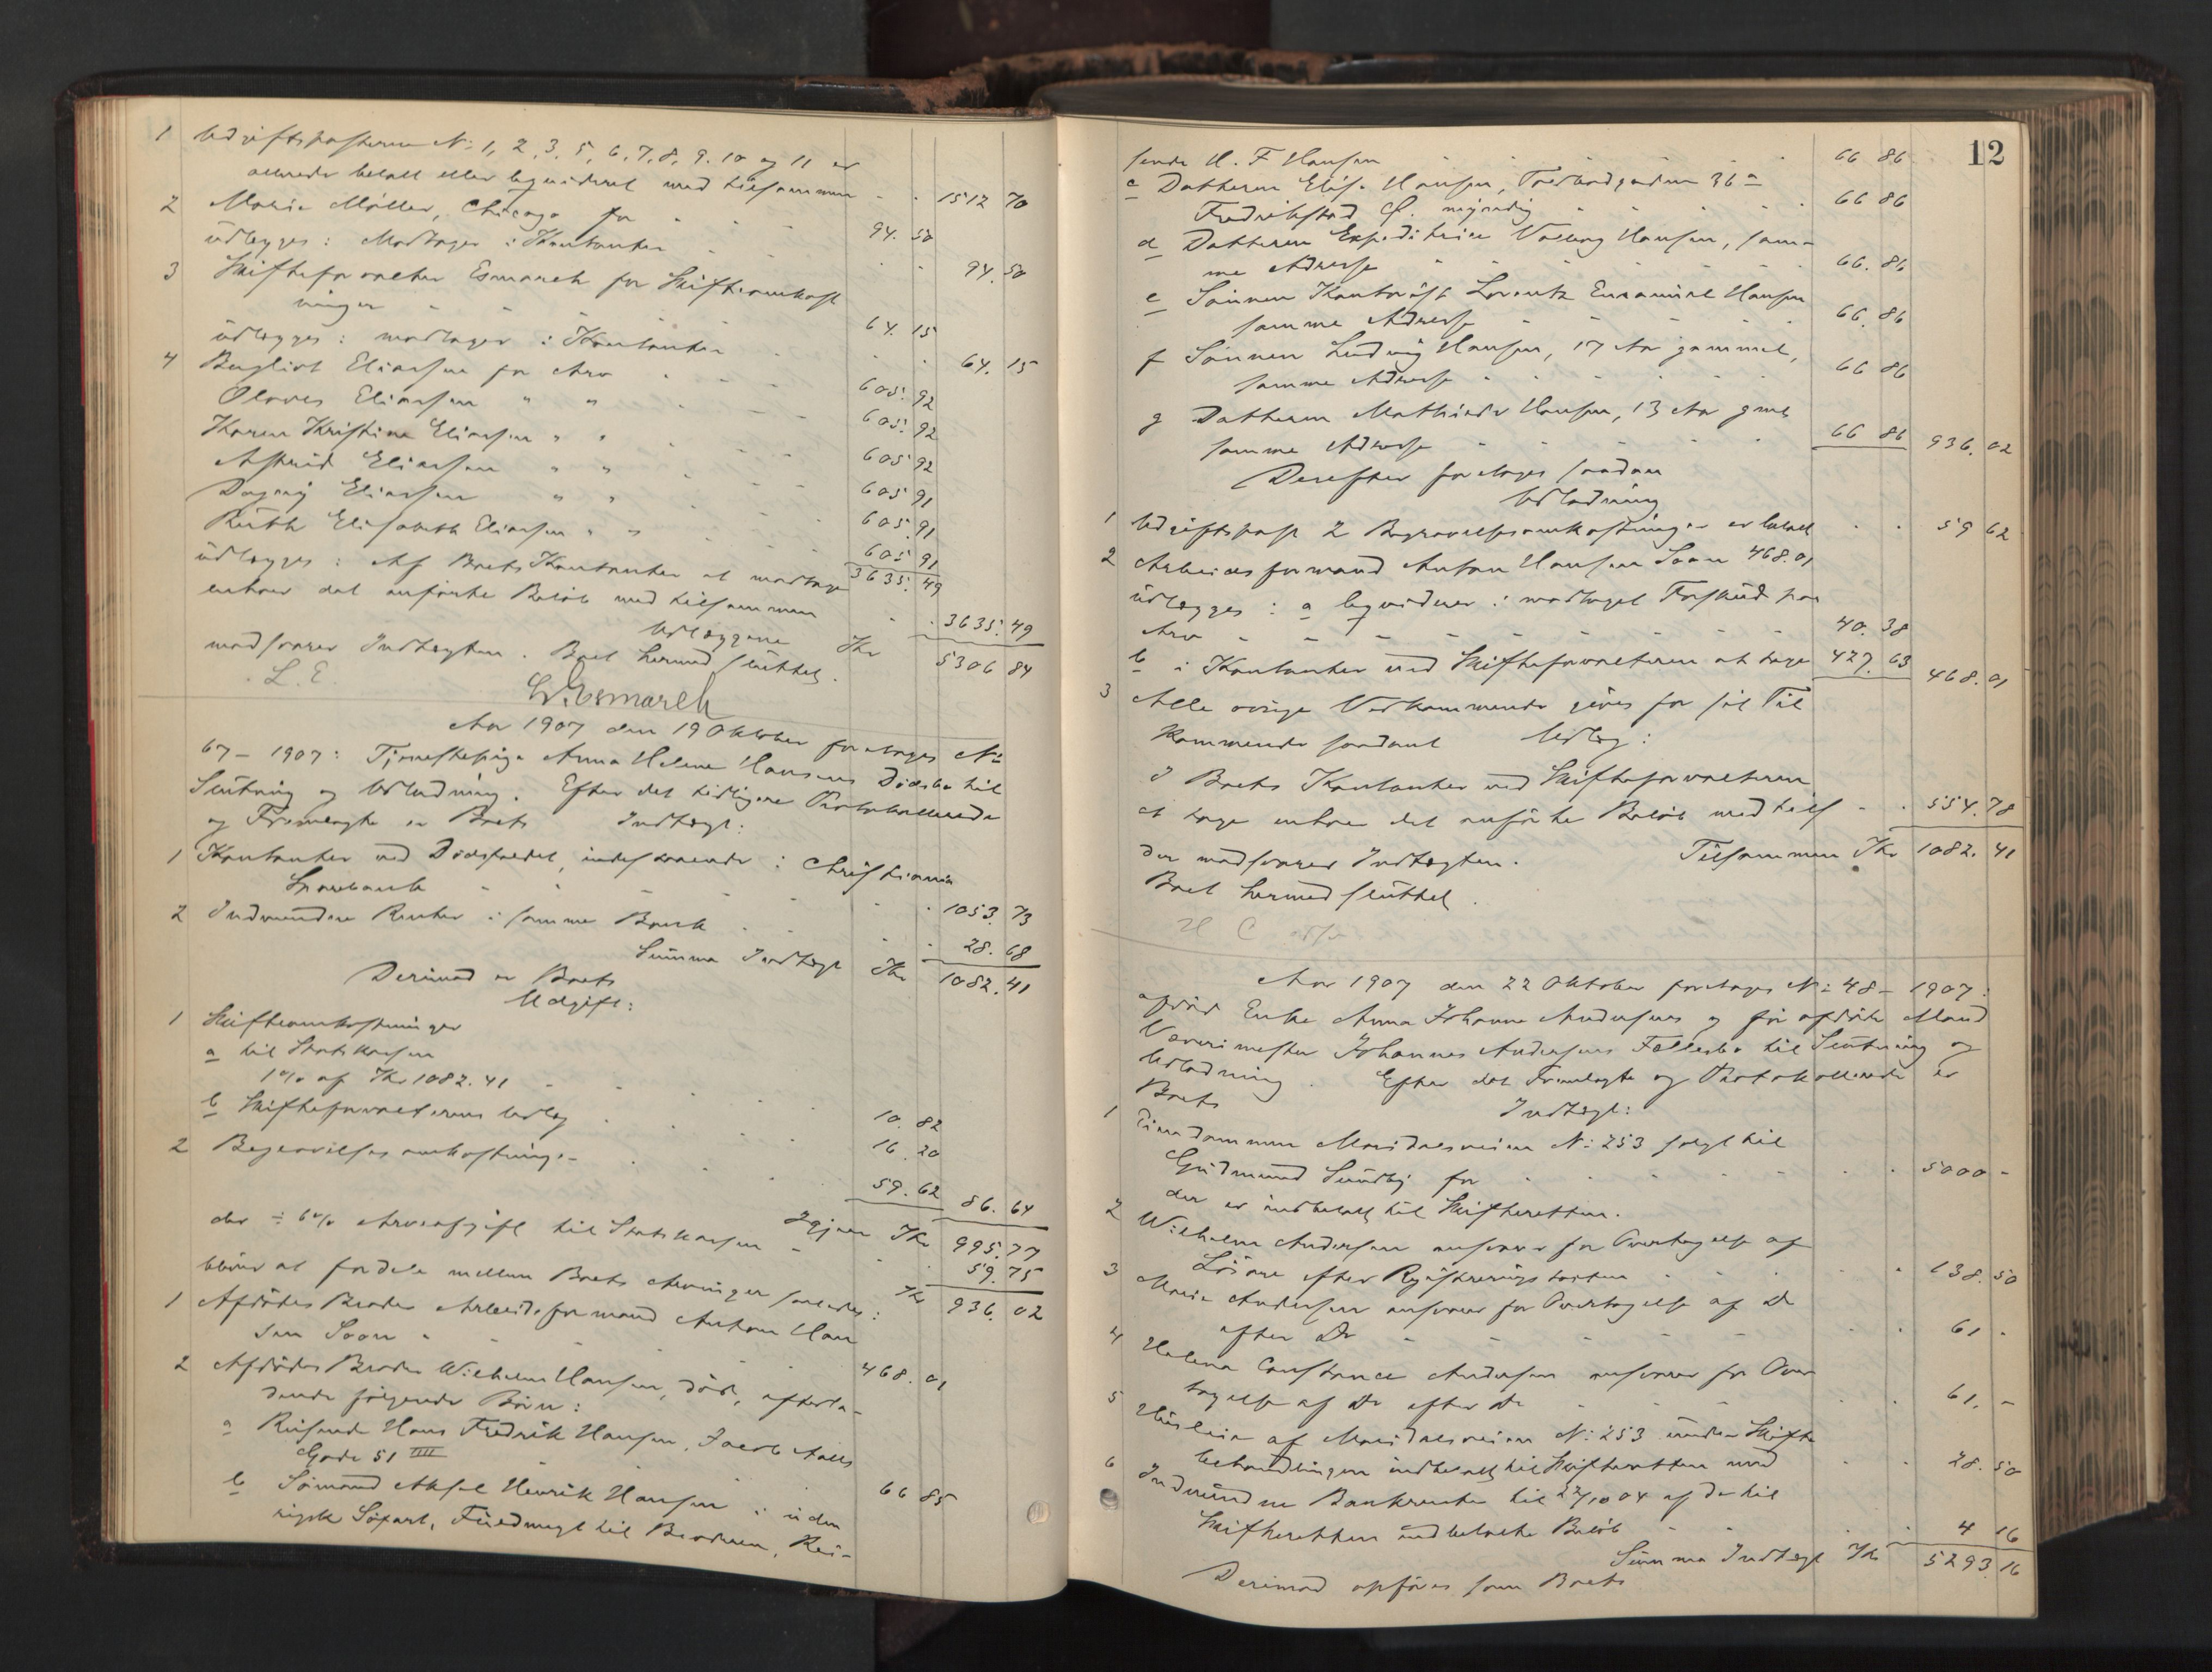 1 Udgiftsposterne N: 1, 2, 3, 5, 6, 7, 8, 9, 10 og 11 er
allerede betalt eller liqvideret med tilsammen 1512 70
2 Marie Møller, Chicago for 94. 50
udlægges: Modtager i Kontanter 94. 50
3 Skifteforvalter Esmarch for Skifteomkost
ninger 64. 15
udlægges: modtager i Kontanter 64. 15
4 Bergliot Eliassen for Arv 605. 92
Oloves Eliassen " " 605. 92
Karen Kristine Eliassen " " 605 92
Astrid Eliassen " " 605 91
Dagny Eliassen " " 605 91
Ruth Elisabeth Eliassen " " 605 91
3635. 49
udlægges: Af Boets Kontanter at modtage
enhver det anførte Beløb med tilsammen 3635. 49
Udlæggene Kr 5306 84
modsvarer Indtægten. Boet hermed sluttet.
L. E.
W. Esmarch
Aar 1907 den 19 Oktober foretages N:
67 - 1907: Tjenestepige Anna Helene Hansens Dødsbo til
Slutning og Udlodning. Efter det tidligere Protokollerede
og Fremlagte er Boets Indtægt:
1 Kontanter ved Dødsfaldet, indestaaende i Christiania
Sparebank 1053. 73
2 Indvundne Renter i samme Bank 28. 68
Summa Indtægt Kr 1082. 41
Derimod er Boets
Udgift:
1 Skifteomkostninger
a til Statskassen
1% af Kr 1082. 41 10. 82
b Skifteforvalterens Udlæg 16. 20
2 Begravelsesomkostninger 59. 62 86. 64
Igjen Kr 995. 77
der ÷ 6% Arveafgift til Statskassen 59. 75
bliver at fordele mellem Boets Arvinger saaledes: Kr 936. 02
1 Afdødes Broder Arbeidsformand Anton Han
sen Soon 468. 01
2 Afdødes Broder Wilhelm Hansen, død, efterla-
dende følgende Børn:
a Reisende Hans Fredrik Hansen, Jacob Aalls
Gade 51 IIII 66 85
b Sømand Aksel Henrik Hansen i uden
rigsk Søfart, Fuldmagt til Broderen, Rei-
12
sende H. F. Hansen 66 86
c Datteren Elise Hansen, 36 a
Fredrikstad myndig 66 86
d Datteren Expeditrice Valborg Hansen, sam-
me Adresse 66. 86
e Sønnen Kontorist Lorentz Emanuel Hansen
samme Adresse 66. 86
f Sønnen Ludvig Hansen, 17 Aar gammel,
samme Adresse 66 86
g Datteren Mathilde Hansen, 13 Aar gml
samme Adresse 66 86 936. 02
Derefter foretages saadan
Udlodning
1 Udgiftspost 2 Begravelsesomkostninger er betalt 59 62
2 Arbeidsformand Anton Hansen Soon 468. 01
udlægges: a liqviderer i modtaget Forskud paa
Arv 40. 38
b i Kontanter ved Skifteforvalteren at tage 427. 63 468. 01
3 Alle øvrige Vedkommende gives for sit Til
kommende saadant Udlæg:
I Boets Kontanter ved Skifteforvalteren
at tage enhver det anførte Beløb med tils 554. 78
Tilsammen Kr 1082. 41
der modsvarer Indtægten.
Boet hermed sluttet.
Aar 1907 den 22 Oktober foretages N: 48 - 1907:
afdød Enke Anna Johanne Andersens og før afdøde Mand
Væverimester Johannes Andersens Fællesbo til Slutning og
Udlodning. Efter det Fremlagte og Protokollerede er
Boets Indtægt:
1 Eiendommen Maridalsveien N: 253 solgt til
Gudmund Sundby for 5000 -
der er indbetalt til Skifteretten.
2 Wilhelm Andersen ansvarer for Overtagelse af
Løsøre efter Registreringstaxten 138. 50
3 Marie Andersen ansvarer for Overtagelse af Do
efter Do 61 -
4 Helena Constance Andersen ansvarer for Over
tagelse af Do efter Do 61. -
5 Husleie af Maridalsveien N: 253 under Skifte
behandlingen indbetalt til Skifteretten med 28. 50
6 Indvundne Bankrenter til 22/10 07 af de til
Skifteretten indbetalte Beløb 4 16
Summa Indtægt Kr 5293. 16
Derimod opføres som Boets